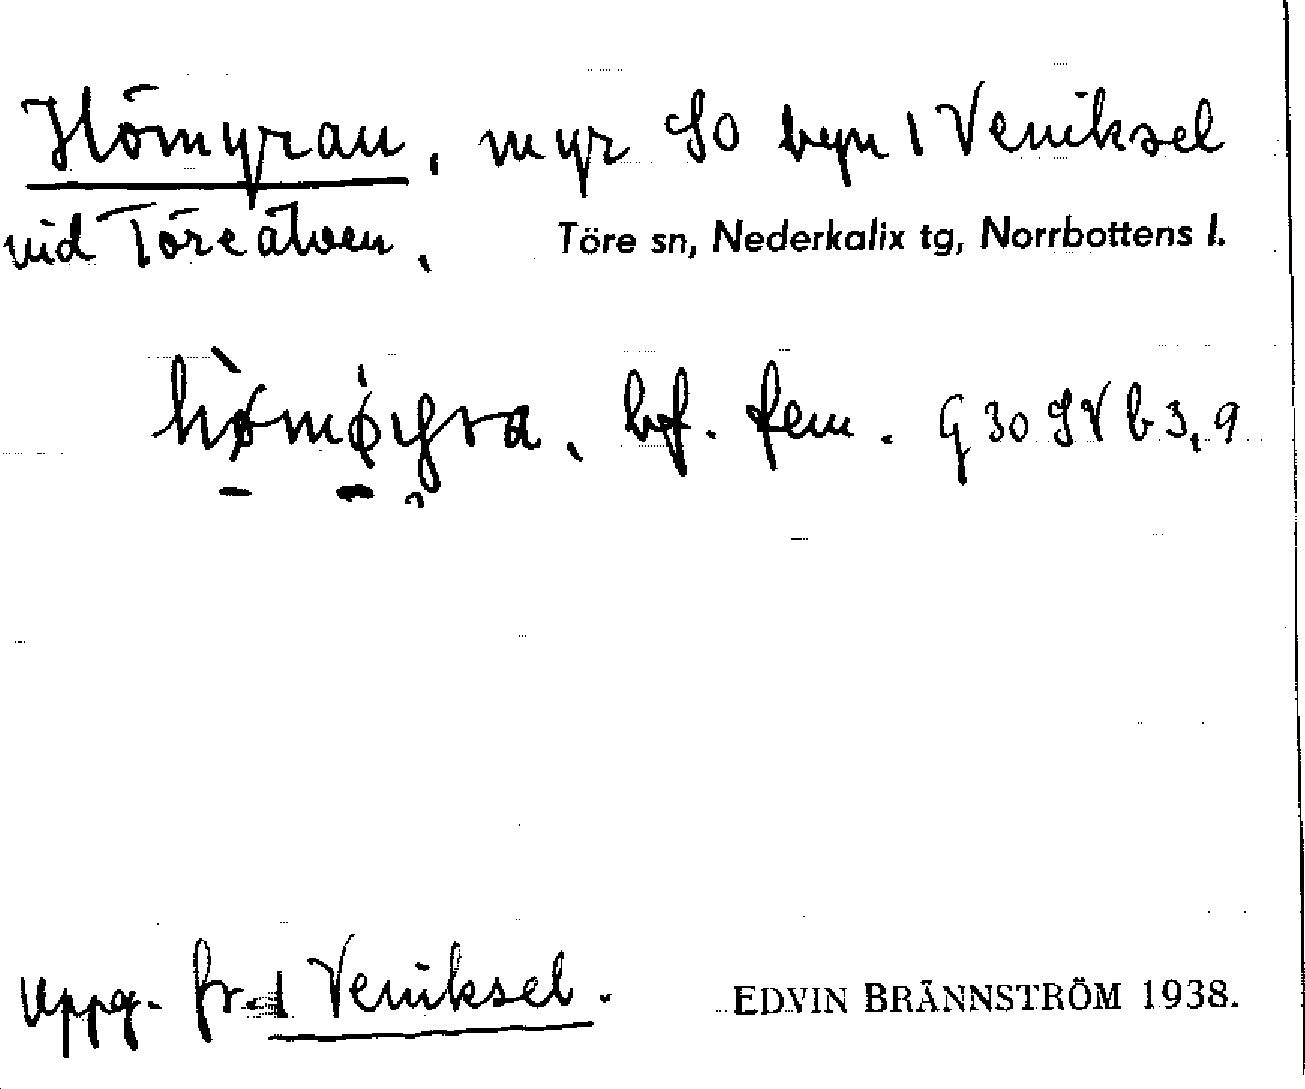 Hömyran, myr SO byn 1 Veniksel
vid Töreälven, Töre sn, Nederkalix tg, Norrbottens l.
bf. fem. G 30 SV b 3,9
Uppg. fr. 1 Veniksel. EDVIN BRÄNNSTRÖM 1938.